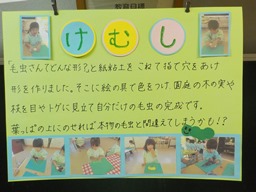 けむし
「毛虫さんてどんな形?」と紙粘土をこねて指で穴をあけ
形を作りました。そこに絵の具で色をつけ、園庭の木の実や
枝を目やトゲに見立て自分だけの毛虫の完成です。
葉っぱの上にのせれば本物の毛虫と間違えてしまうかも!?